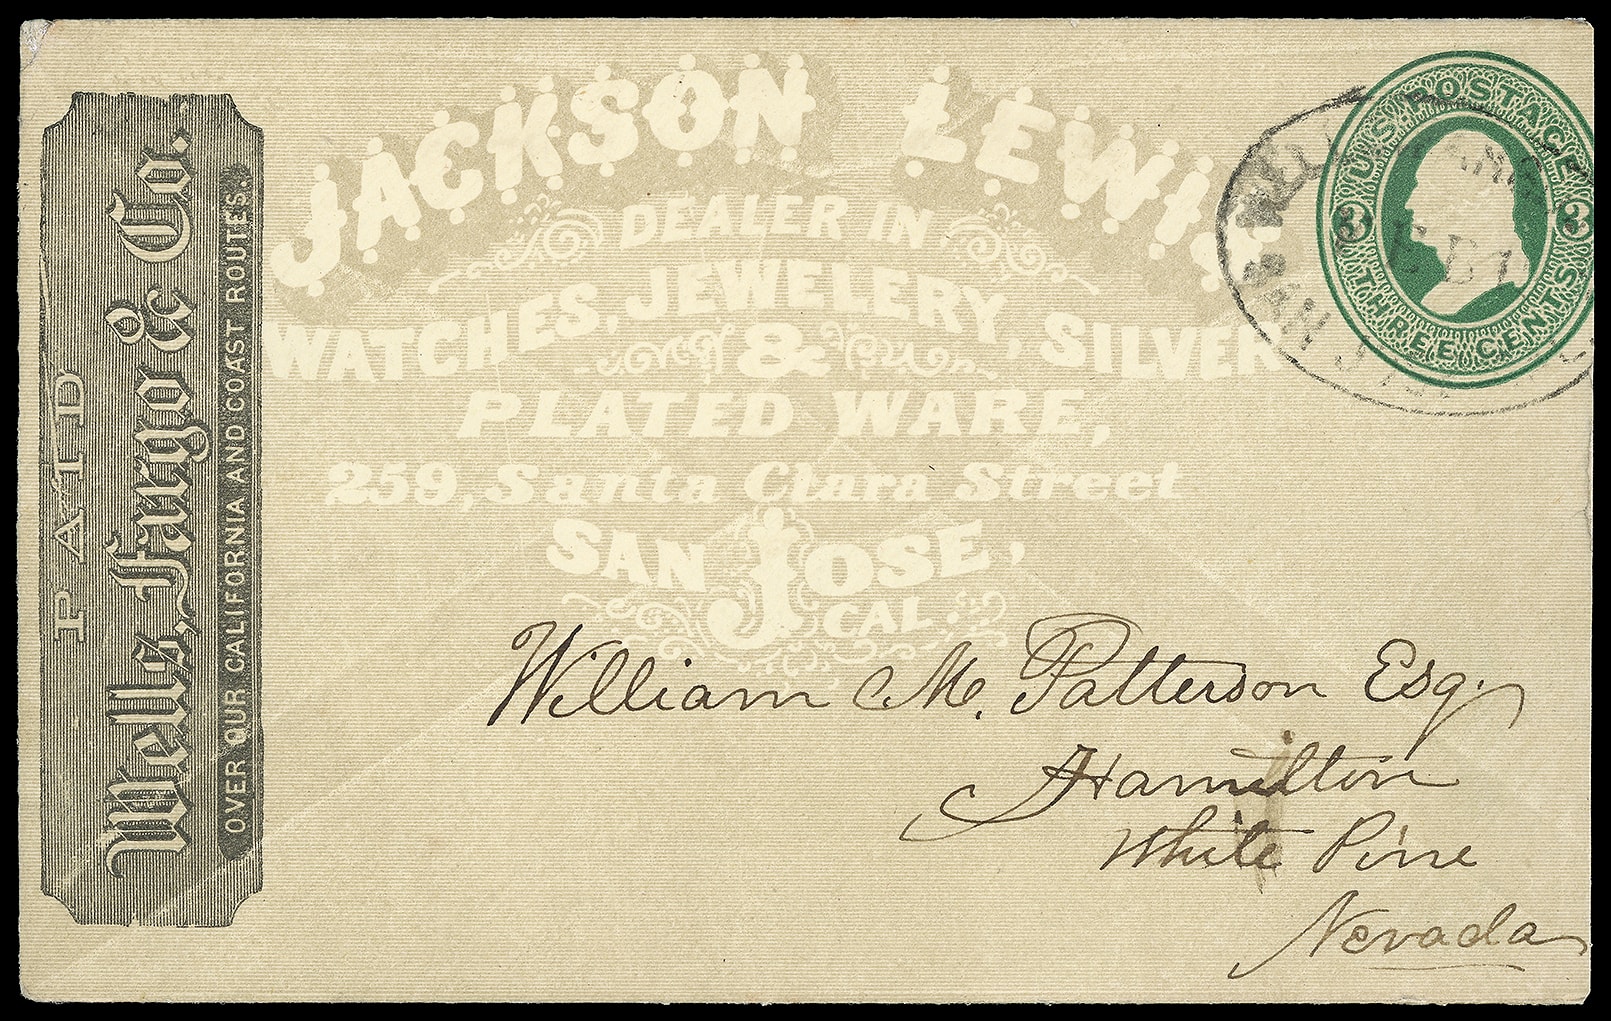 PAID
Wells, Fargo & Co.
OVER OUR CALIFORNIA AND COAST ROUTES.
JACKSON LEWIS
DEALER IN
WATCHES, JEWELERY, SILVER
&
PLATED WARE,
259, Santa Clara Street
SAN JOSE,
CAL.
U.S. POSTAGE
3 3
THREE CENTS
WELLS FARGO
FEB 1
SAN JOSE
William M. Patterson Esq.
Hamilton
White Pine
Nevada